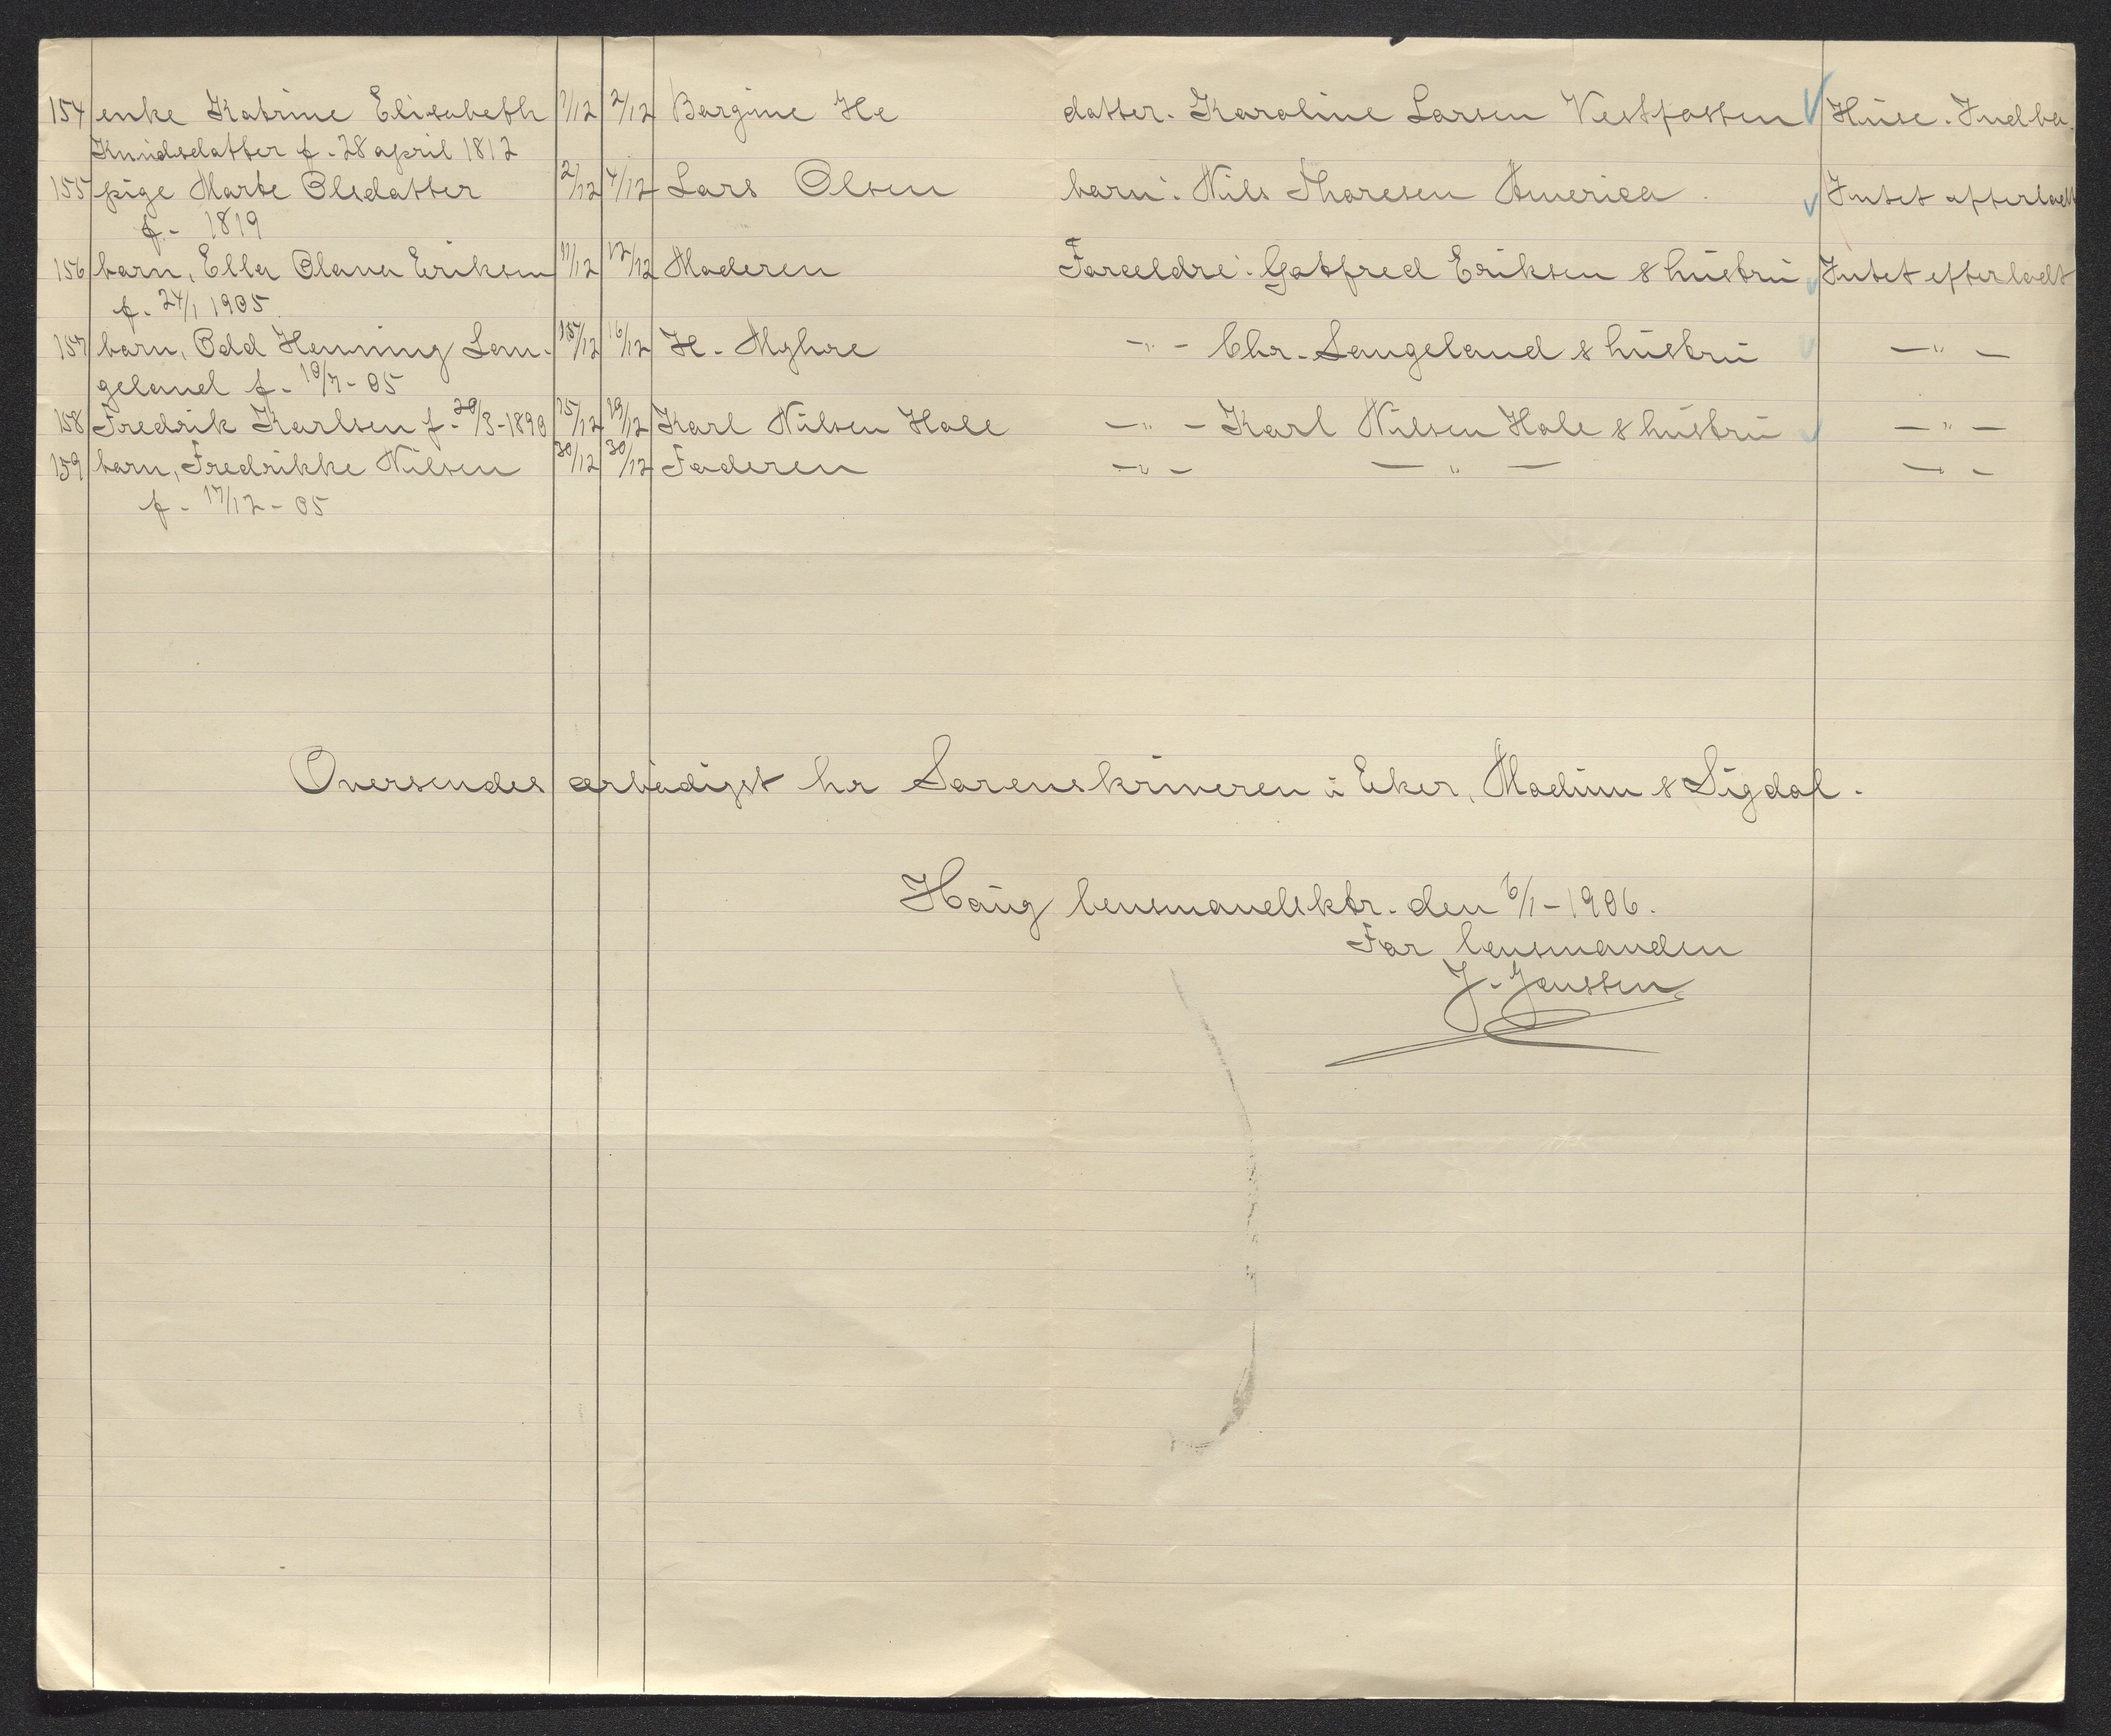 154 enke Katrine Elisabeth 1/12 2/12 Bergine He datter. Karoline Larsen Vestfossen Huse. Indbo.
Knudsdatter f. 28 april 1812
155 pige Marte Olsdatter 2/12 4/12 Lars Olsen barn: Nils Thoresen America. Intet efterladt
f. 1819
156 barn, Ella Olava Eriksen 11/12 12/12 Moderen Foreldre: Gotfred Eriksen & hustru Intet efterladt
f. 24/1 1905
157 barn, Odd Henning Lan- 15/12 16/12 H. Myhre — " — Chr. Langeland & hustru — " —
geland f. 10/7 - 05
158 Fredrik Karlsen f. 20/3-1890 15/12 19/12 Karl Nilsen Hole — " — Karl Nilsen Hole & hustru — " —
159 barn, Fredrikke Nilsen 30/12 30/12 Faderen — " — — " — — " —
f. 17/12 - 05
Oversendes ærbødigst hr Sorenskriveren i Eker, Modum & Sigdal.
Haug lensmandsktr. den 6/1-1906.
For lensmanden
J. Jenssen